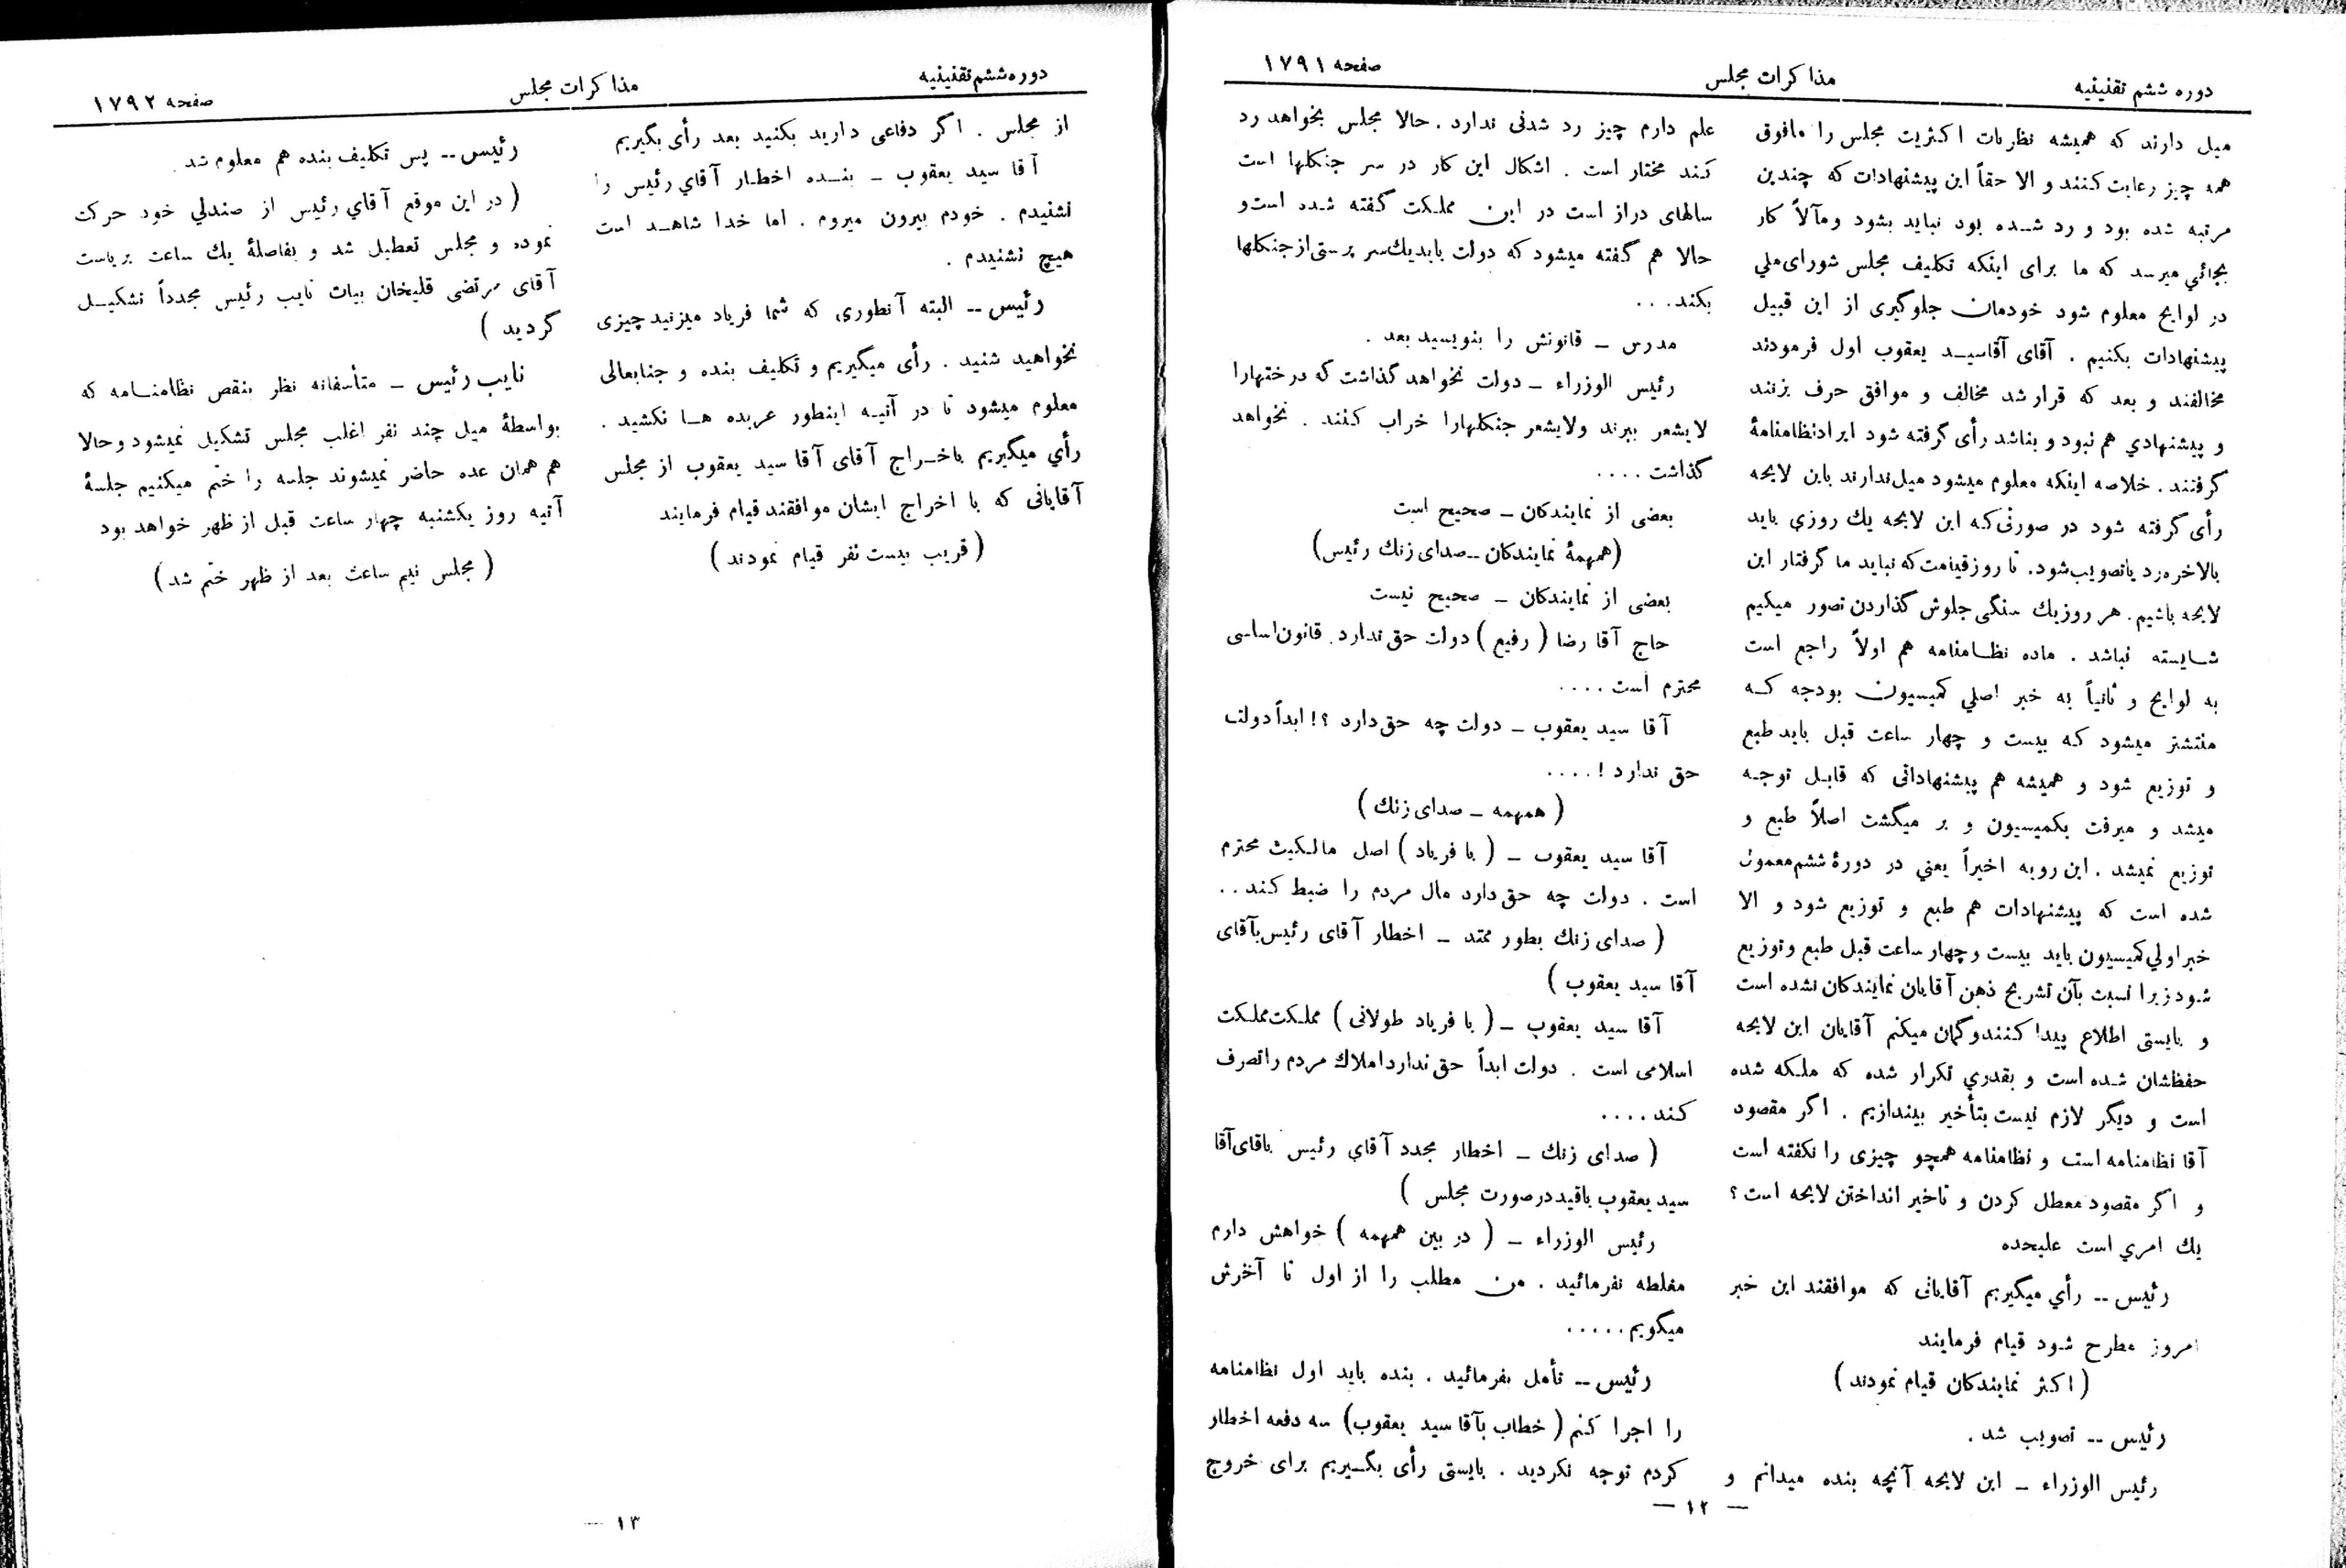 دوره ششم تقنینیه
مذاکرات مجلس
صفحه ۱۷۹۱
میل دارند که همیشه نظریات اکثریت مجلس را مافوق
همه چیز رعایت کنند و الا حقاً این پیشنهادات که چندین
مرتبه شده بود و رد شده بود نباید بشود ومآلاً کار
بجائي میرسد که ما برای اینکه تکلیف مجلس شورای ملي
در لوایح معلوم شود خودمان جلوگیری از این قبیل
پیشنهادات بکنیم . آقای آقاسید یعقوب اول فرمودند
مخالفند و بعد که قرار شد مخالف و موافق حرف بزنند
و پیشنهادي هم نبود و بناشد رأی گرفته شود ایرادنظامنامهٔ
گرفتند . خلاصه اینکه معلوم میشود میل ندارند باین لایحه
رأی گرفته شود در صورتی که این لایحه یك روزي باید
بالاخره رد یا تصویب شود. تا روز قیامت که نباید ما گرفتار این
لایحه باشیم. هر روز یك سنگی جلوش گذاردن تصور میکنم
شایسته نباشد . ماده نظامنامه هم اولاً راجع است
به لوایح و ثانیاً به خبر اصلي کمیسیون بودجه که
منتشر میشود که بیست و چهار ساعت قبل باید طبع
و توزیع شود و همیشه هم پیشنهاداتی که قابل توجه
میشد و میرفت بکمیسیون و بر میگشت اصلاً طبع و
توزیع نمیشد . این رویه اخیراً یعني در دورهٔ ششم معمول
شده است که پیشنهادات هم طبع و توزیع شود و الا
خبر اولي کمیسیون باید بیست و چهار ساعت قبل طبع و توزیع
شود زیرا نسبت بآن تشریح ذهن آقایان نمایندکان نشده است
و بایستی اطلاع پیدا کنند و گمان میکنم آقایان این لایحه
حفظشان شده است و بقدري تکرار شده که ملکه شده
است و دیگر لازم نیست بتأخیر بیندازیم . اگر مقصود
آقا نظامنامه است و نظامنامه همچو چیزی را نکفته است
و اگر مقصود معطل کردن و تاخیر انداختن لایحه است ؟
یك امري است علیحده
رئیس -- رأي میگیریم آقایانی که موافقند این خبر
امروز مطرح شود قیام فرمایند
( اکثر نمایندکان قیام نمودند )
رئیس -- تصویب شد .
رئیس الوزراء - این لایحه آنچه بنده میدانم و
علم دارم چیز رد شدنی ندارد . حالا مجلس بخواهد رد
کند مختار است . اشکال این کار در سر جنکلها است
سالهای دراز است در این مملکت گفته شده است و
حالا هم گفته میشود که دولت باید یك سر پرستی از جنکلها
بکند...
مدرس - قانونش را بنویسید بعد .
رئیس الوزراء - دولت نخواهد گذاشت که درختهارا
لایشعر ببرند ولایشعر جنکلهارا خراب کنند . نخواهد
گذاشت ....
بعضی از نمایندکان - صحیح است
(همهمهٔ نمایندکان - صدای زنك رئیس)
بعضی از نمایندکان - صحیح نیست
حاج آقا رضا ( رفیع ) دولت حق ندارد . قانون اساسی
محترم است ....
آقا سید یعقوب - دولت چه حق دارد ؟! ابداً دولت
حق ندارد ! ....
( همهمه - صدای زنك )
آقا سید یعقوب - ( با فریاد ) اصل مالکیت محترم
است . دولت چه حق دارد مال مردم را ضبط کند ..
( صدای زنك بطور ممتد - اخطار آقای رئیس بآقای
آقا سید یعقوب )
آقا سید یعقوب - ( با فریاد طولانی ) مملکت مملکت
اسلامی است . دولت ابداً حق ندارد املاك مردم را تصرف
کند ....
( صدای زنك - اخطار مجدد آقاي رئیس باقای آقا
سید یعقوب باقید درصورت مجلس )
رئیس الوزراء - ( در بین همهمه ) خواهش دارم
مغلطه نفرمائید . من مطلب را از اول تا آخرش
میگویم.....
رئیس -- تأمل بفرمائید . بنده باید اول نظامنامه
را اجرا کنم ( خطاب بآقا سید یعقوب) سه دفعه اخطار
کردم توجه نکردید . بایستی رأی بگیریم برای خروج
— ۱۲ —
دوره ششم تقنینیه
مذاکرات مجلس
صفحه ۱۷۹۲
از مجلس . اگر دفاعی دارید بکنید بعد رأی بگیریم
آقا سید یعقوب - بنده اخطار آقاي رئیس را
نشنیدم . خودم بیرون میروم . اما خدا شاهد است
هیچ نشنیدم .
رئیس -- البته آنطوری که شما فریاد میزنید چیزی
نخواهید شنید . رأی میگیریم و تکلیف بنده و جنابعالی
معلوم میشود تا در آتیه اینطور عربده ها نکشید .
رأي میگیریم باخراج آقای آقا سید یعقوب از مجلس
آقایانی که با اخراج ایشان موافقند قیام فرمایند
( قریب بیست نفر قیام نمودند )
رئیس -- پس تکلیف بنده هم معلوم شد .
( در این موقع آقاي رئیس از صندلي خود حرکت
نموده و مجلس تعطیل شد و بفاصلهٔ یك ساعت بریاست
آقای مرتضی قلیخان بیات نایب رئیس مجدداً تشکیل
گردید )
نایب رئیس - متأسفانه نظر بنقص نظامنامه که
بواسطهٔ میل چند نفر اغلب مجلس تشکیل نمیشود و حالا
هم همان عده حاضر نمیشوند جلسه را ختم میکنیم جلسهٔ
آتیه روز یکشنبه چهار ساعت قبل از ظهر خواهد بود
( مجلس نیم ساعت بعد از ظهر ختم شد )
۱۳ —